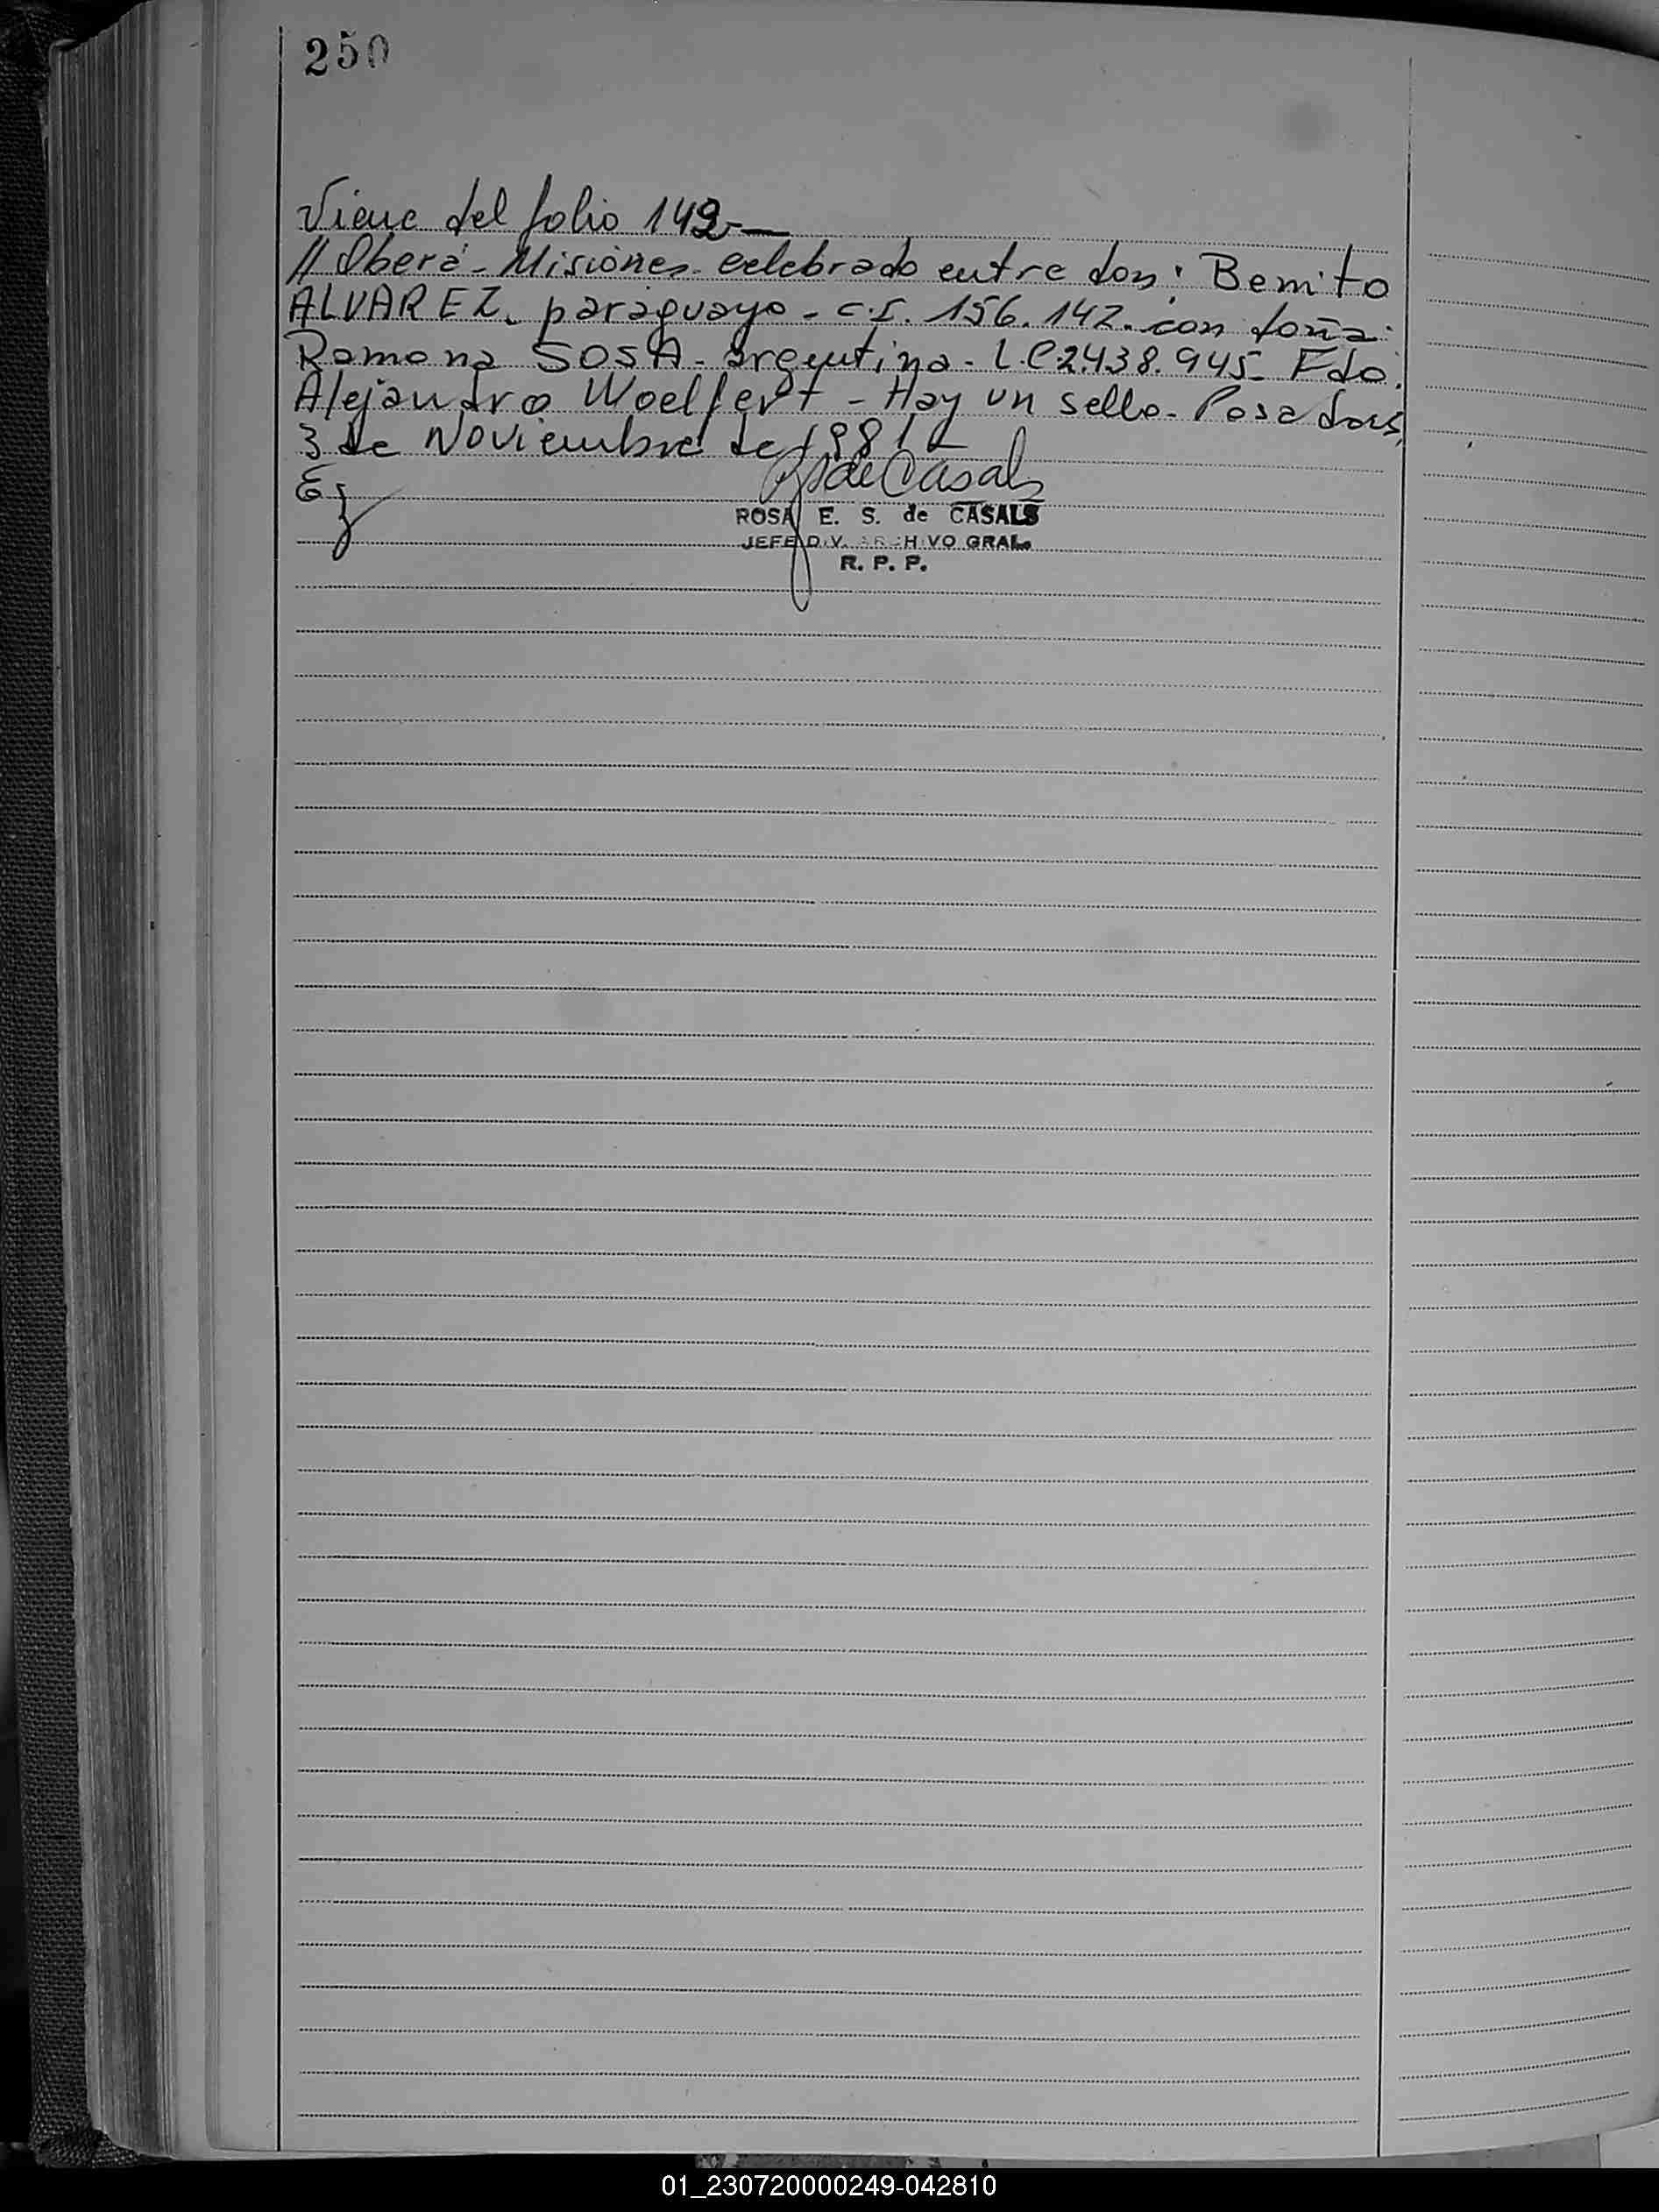 250
Viene del folio 142-
// Oberá - Misiones - celebrado entre don: Benito
ALVAREZ - paraguayo - C.I. 156.142. con doña:
Ramona SOSA - argentina - L.C 2.438.945 - Fdo.
Alejandro Woelfert - Hay un sello - Posadas,
3 de Noviembre de 1981
de Casals
ROSA E. S. de CASALS
JEFE DIV. ARCHIVO GRAL.
R. P. P.
01_230720000249-042810